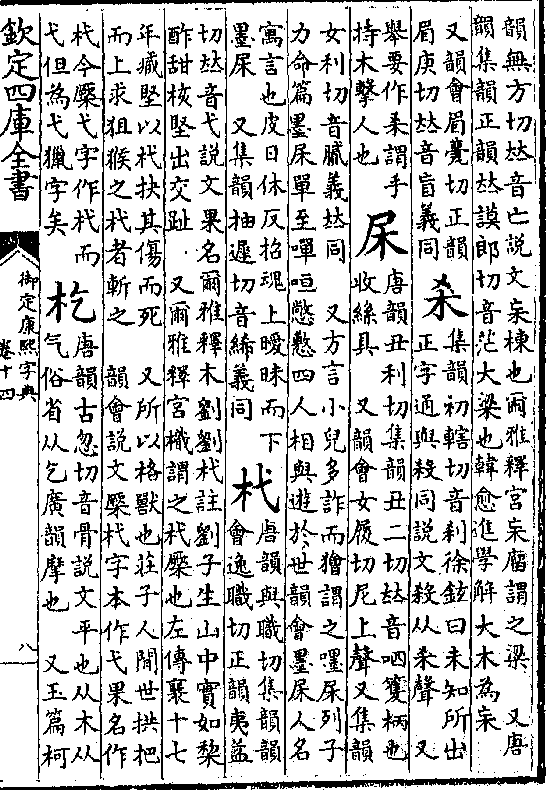 韻無方切𠀤音亡說文杗棟也爾雅釋宮杗廇謂之梁 又唐
韻集韻正韻𠀤謨郎切音茫大梁也韓愈進學解大木為杗
又韻會眉甍切正韻
眉庚切𠀤音盲義同
杀
集韻初轄切音刹徐鉉曰未知所出
正字通與殺同說文殺从杀聲 又
舉要作杀謂手
持木擊人也
杘
唐韻丑利切集韻丑二切𠀤音呬籰柄也
收絲具 又韻會女履切尼上聲又集韻
女利切音膩義𠀤同 又方言小兒多詐而獪謂之嚜杘列子
力命篇墨杘單至嘽咺憋懯四人相與遊於世韻會墨杘人名
寓言也皮日休反招魂上曖昧而下
墨杘 又集韻抽遲切音絺義同
杙
唐韻與職切集韻韻
會逸職切正韻夷益
切𠀤音弋說文果名爾雅釋木劉劉杙註劉子生山中實如棃
酢甜核堅出交趾 又爾雅釋宮樴謂之杙橜也左傳襄十七
年臧堅以杙抉其傷而死 又所以格獸也莊子人間世拱把
而上求狙猴之杙者斬之 韻會說文橜杙字本作弋果名作
杙今橜弋字作杙而
弋但為弋獵字矣
杚
唐韻古忽切音骨說文平也从木从
气俗省从乞廣韻摩也 又玉篇柯
欽定四庫全書
御定康熙字典
卷十四
八